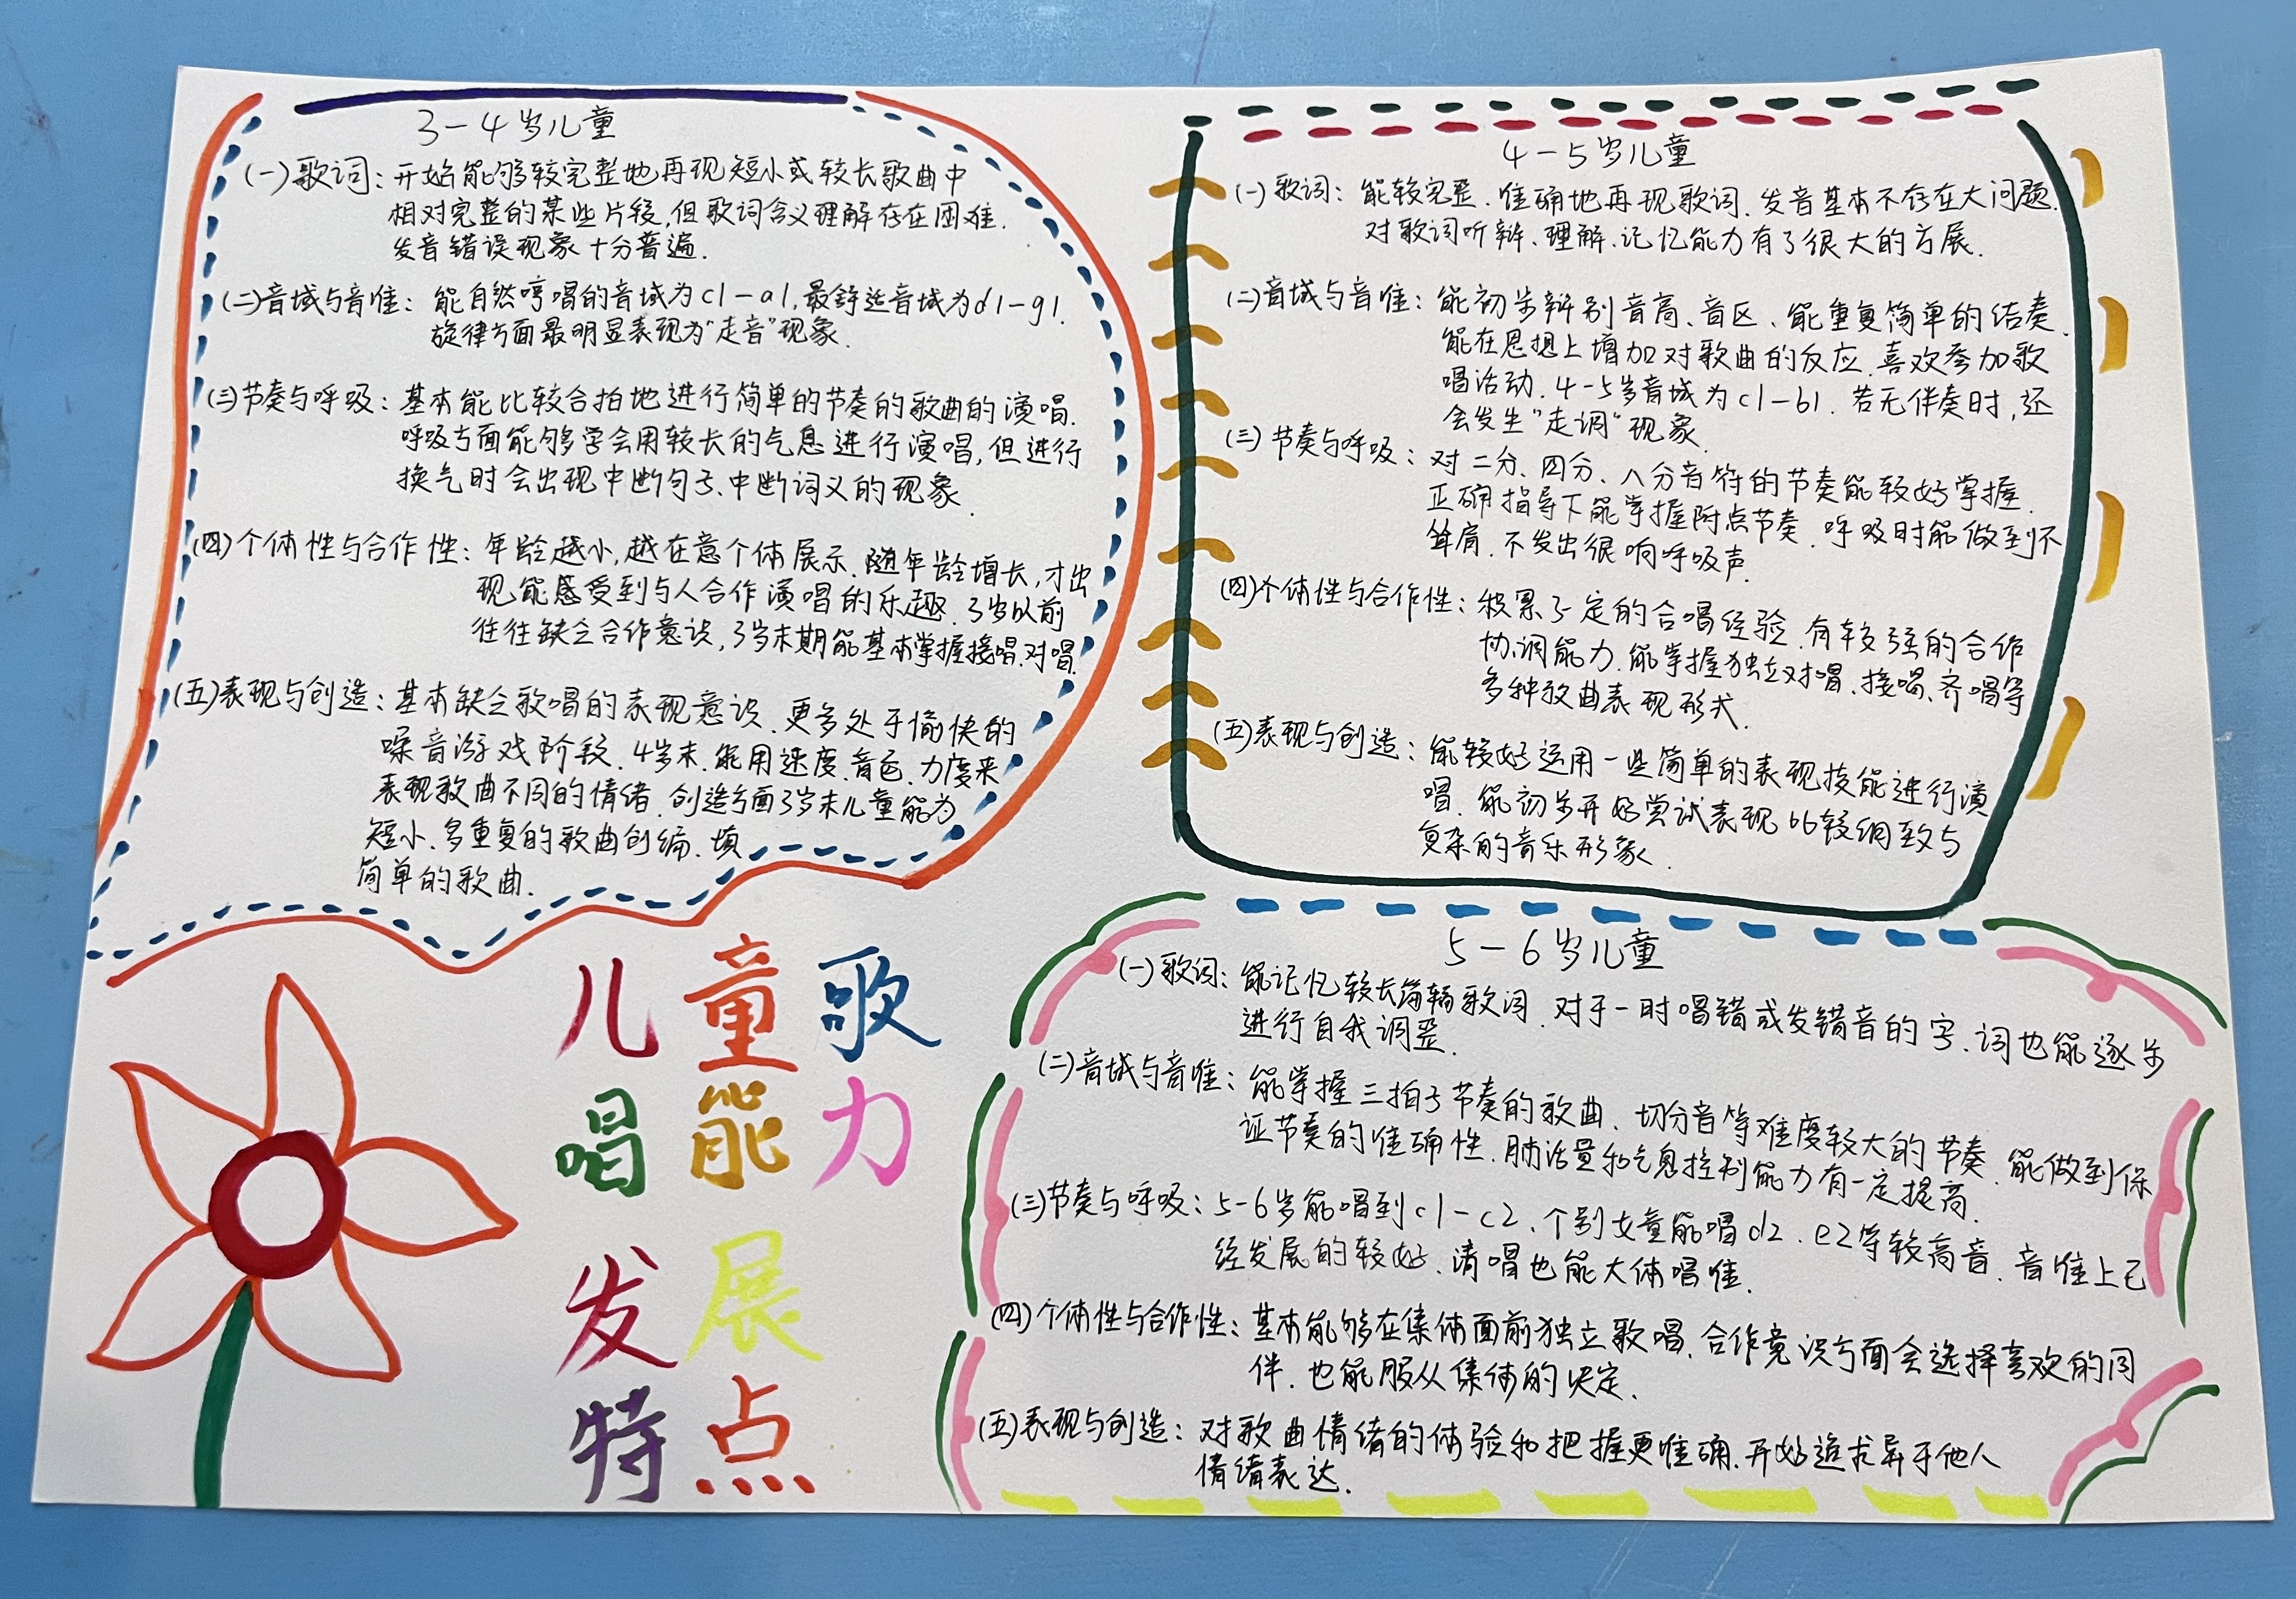 3-4岁儿童
(一)歌词:开始能够较完整地再现短小或较长歌曲中
相对完整的某些片段,但歌词含义理解存在困难.
发音错误现象十分普遍.
(二)音域与音准:能自然哼唱的音域为c1-a1,最舒适音域为d1-g1.
旋律方面最明显表现为“走音”现象.
(三)节奏与呼吸:基本能比较合拍地进行简单的节奏的歌曲的演唱.
呼吸方面能够学会用较长的气息进行演唱,但进行
换气时会出现中断句子、中断词义的现象.
(四)个体性与合作性:年龄越小,越在意个体展示.随年龄增长,才出
现能感受到与人合作演唱的乐趣.3岁以前
往往缺乏合作意识,3岁末期能基本掌握接唱.对唱.
(五)表现与创造:基本缺乏歌唱的表现意识.更多处于愉快的
嗓音游戏阶段.4岁末.能用速度.音色.力度来
表现歌曲不同的情绪.创造方面3岁末儿童能为
短小、多重复的歌曲创编、填
简单的歌曲.
4-5岁儿童
(一)歌词:能较完整.准确地再现歌词.发音基本不存在大问题.
对歌词听辩、理解、记忆能力有了很大的方展.
(二)音域与音准:能初步辨别音高、音区、能重复简单的结奏.
能在思想上增加对歌曲的反应.喜欢参加歌
唱活动.4-5岁音域为c1-b1.若无伴奏时,还
会发生“走调”现象.
(三)节奏与呼吸:对二分、四分、八分音符的节奏能较好掌握.
正确指导下能掌握附点节奏.呼吸时能做到不
耸肩.不发出很响呼吸声.
(四)个体性与合作性:积累了一定的合唱经验.有较强的合作
协调能力.能掌握独立对唱、接唱、齐唱等
多种歌曲表现形式.
(五)表现与创造:能较好运用一些简单的表现技能进行演
唱.能初步开始尝试表现比较细致与
复杂的音乐形象.
5-6岁儿童
(一)歌词:能记忆较长篇辐歌词.对于一时唱错或发错音的字、词也能逐步
进行自我调整.
(二)音域与音准:能掌握三拍子节奏的歌曲、切分音等难度较大的节奏.能做到保
证节奏的准确性.肺活量和气息控制能力有一定提高.
(三)节奏与呼吸:5-6岁能唱到c1-c2、个别女童能唱d2、e2等较高音.音准上已
经发展的较好、清唱也能大体唱准.
(四)个体性与合作性:基本能够在集体面前独立歌唱.合作意识方面会选择喜欢的同
伴.也能服从集体的决定.
(五)表现与创造:对歌曲情绪的体验和把握更准确.开始追求异于他人
情绪表达.
儿童歌
唱能力
发展
特点